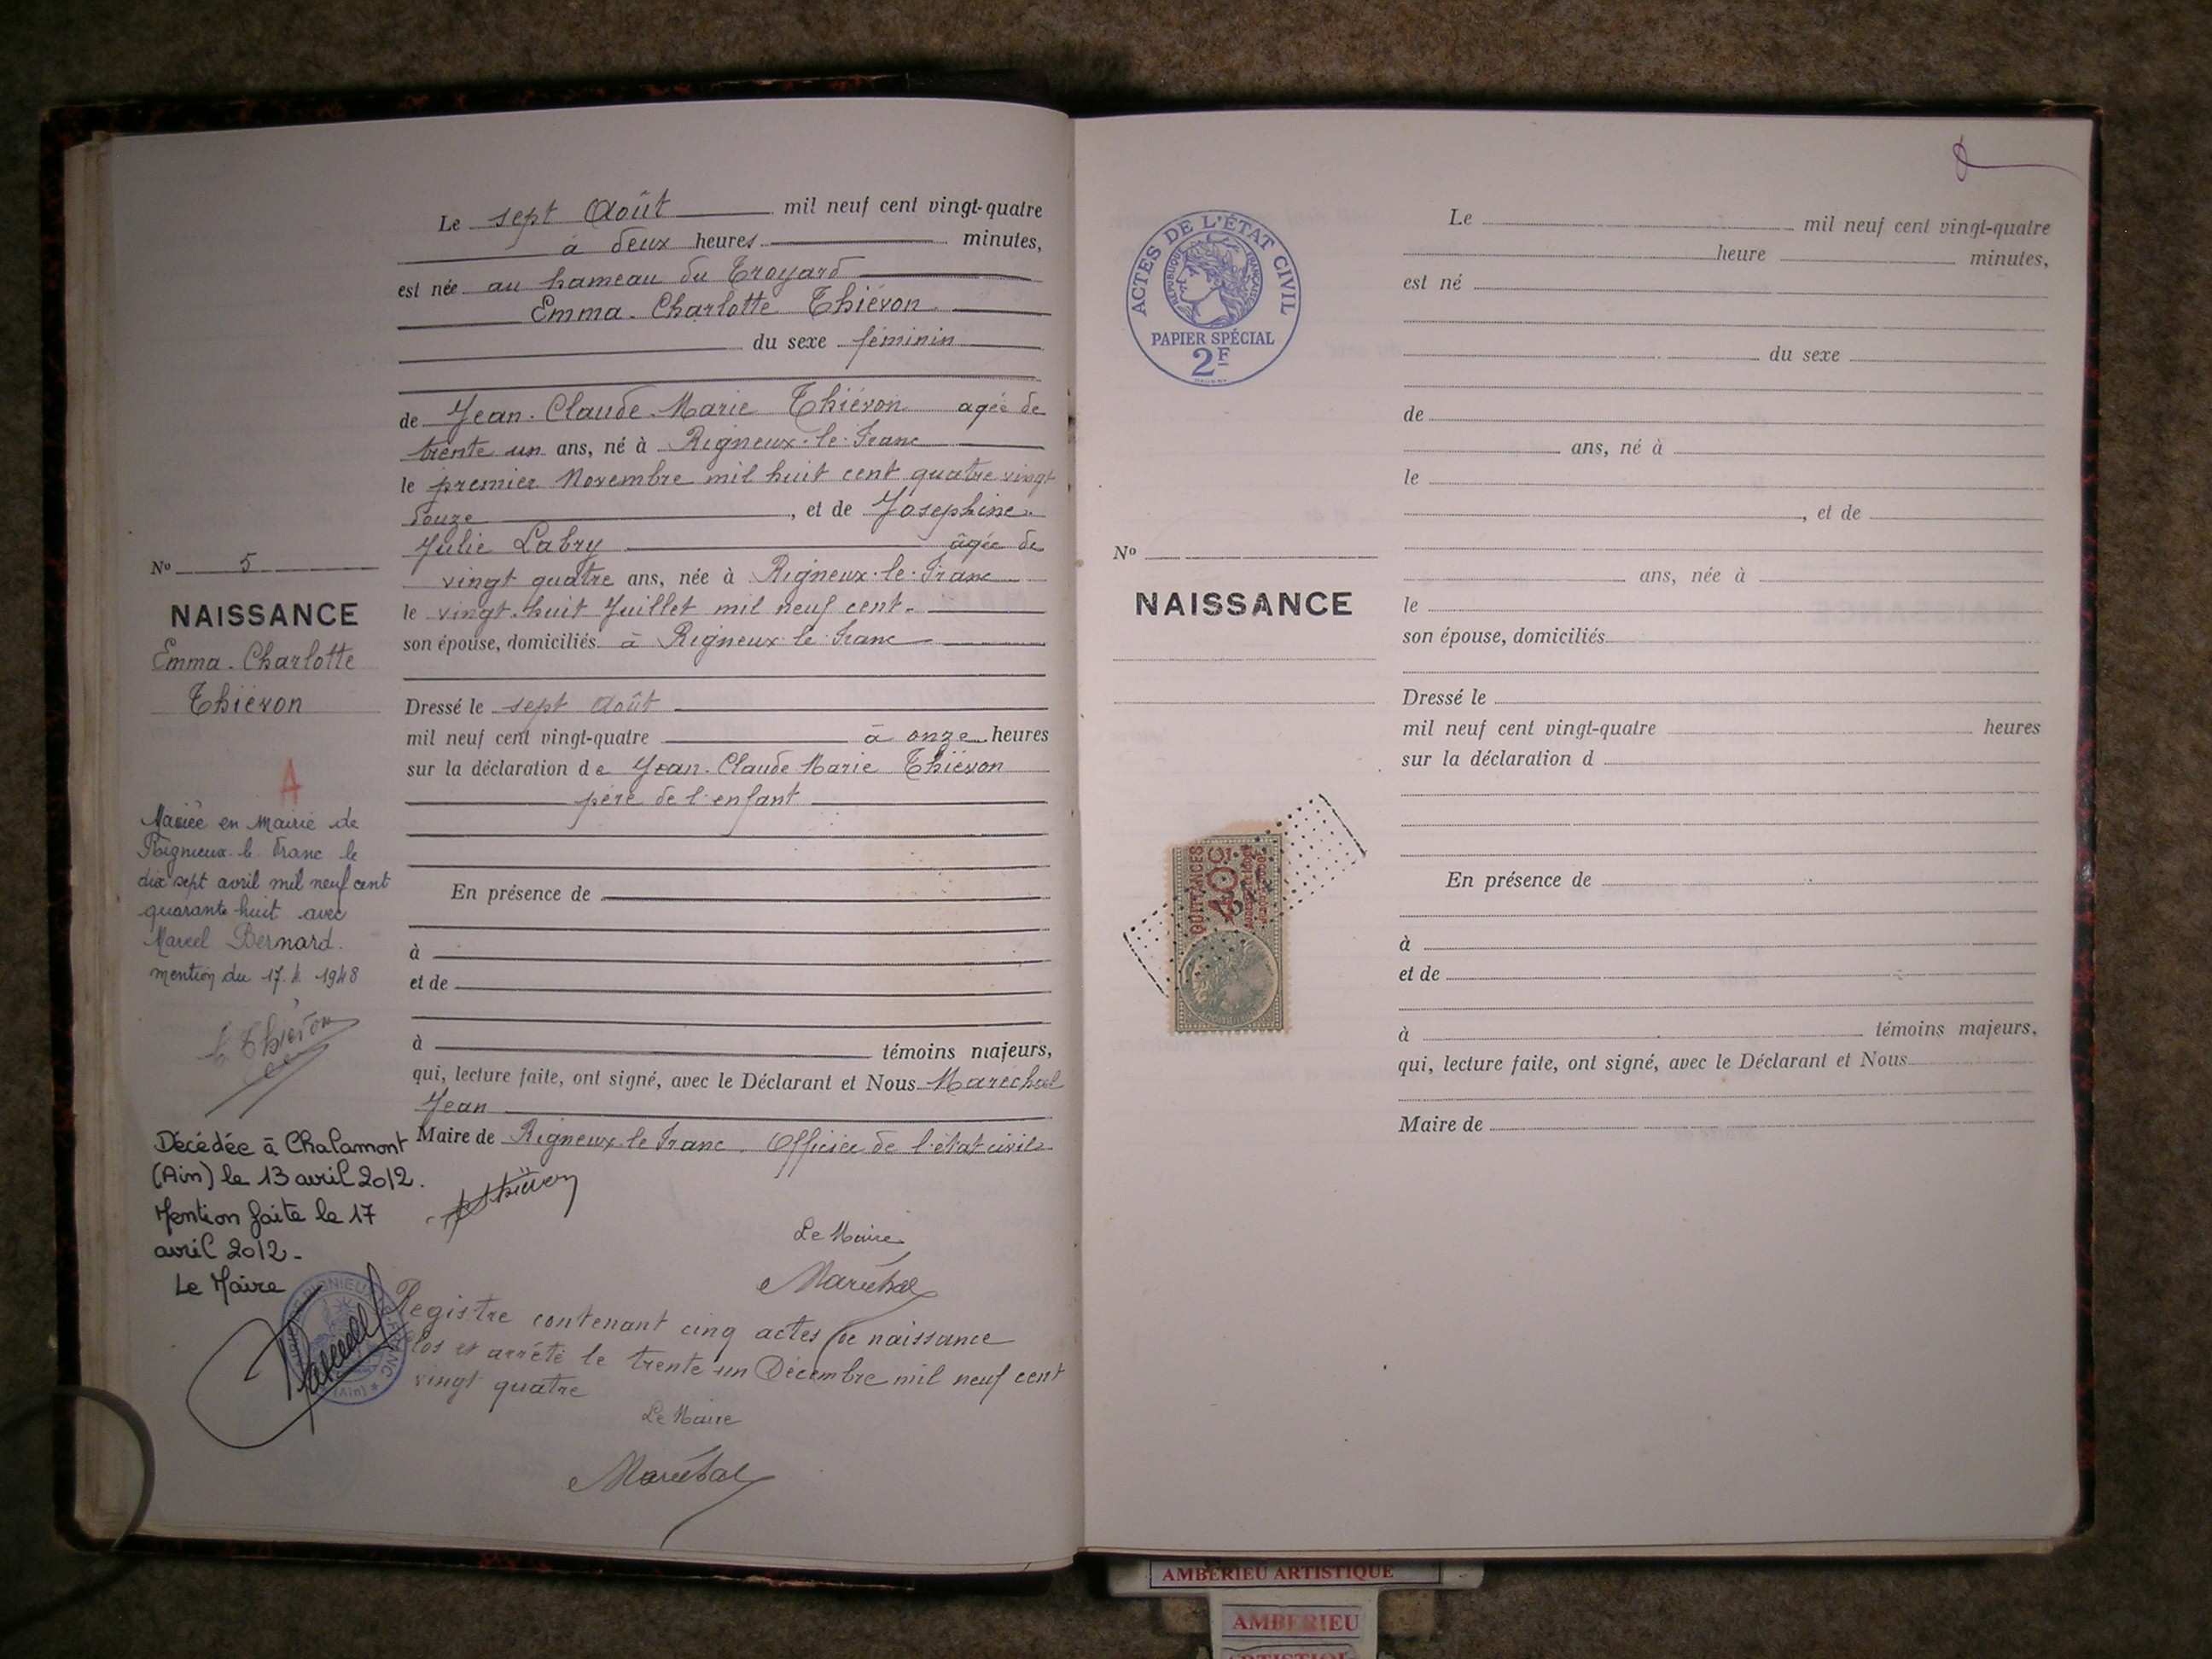 Le sept Août mil neuf cent vingt-quatre
à deux heures minutes,
est née au hameau du Troyard
Emma-Charlotte Thiévon
du sexe féminin
de Jean-Claude-Marie Thiévon agée de
trente un ans, né à Rigneux-le-Franc
le premier Novembre mil huit cent quatre vingt
douze, et de Josephine-
Julie Labry âgée de
vingt quatre ans, née à Rigneux-le-Franc
le vingt-huit Juillet mil neuf cent-
son épouse, domiciliés à Rigneux-le-Franc
Dressé le sept Août
mil neuf cent vingt-quatre à onze heures
sur la déclaration de Jean-Claude Marie Thiévon
père de l'enfant
En présence de
à
et de
à témoins majeurs,
qui, lecture faite, ont signé, avec le Déclarant et Nous Maréchal
Jean
Maire de Rigneux-le-Franc. Officier de l'état civil
Thiévon
Le Maire
Maréchal
Registre contenant cinq actes de naissance
clos et arrêté le trente un Décembre mil neuf cent
vingt quatre
Le Maire
Maréchal
No 5
NAISSANCE
Emma-Charlotte
Thiévon
A
Mariée en mairie de
Rignieux-le-Franc le
dix sept avril mil neuf cent
quarante huit avec
Marcel Bernard.
mention du 17.4.1948
Thiévon
Décédée à Chalamont
(Ain) le 13 avril 2012.
Mention faite le 17
avril 2012-
Le Maire
(Ain)
ACTES DE L'ÉTAT CIVIL
RÉPUBLIQUE FRANÇAISE
PAPIER SPÉCIAL
2F
No
NAISSANCE
QUITTANCES
Le mil neuf cent vingt-quatre
heure minutes,
est né
du sexe
de
ans, né à
le
, et de
ans, née à
le
son épouse, domiciliés
Dressé le
mil neuf cent vingt-quatre heures
sur la déclaration d
En présence de
à
et de
à témoins majeurs,
qui, lecture faite, ont signé, avec le Déclarant et Nous
Maire de
AMBERIEU ARTISTIQUE
AMBERIEU
ARTISTIQUE